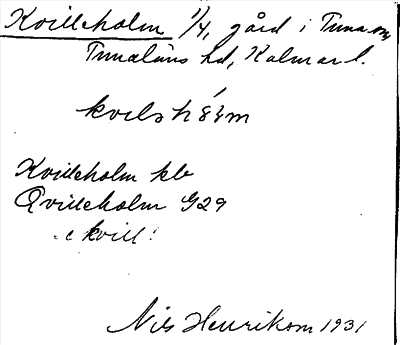 Kvilleholm 1/4, gård i Tuna sn,
Tunaläns hd, Kalmar l.
Kvilleholm klb
Qvilleholm G29
kvill
Nils Henrikson 1931